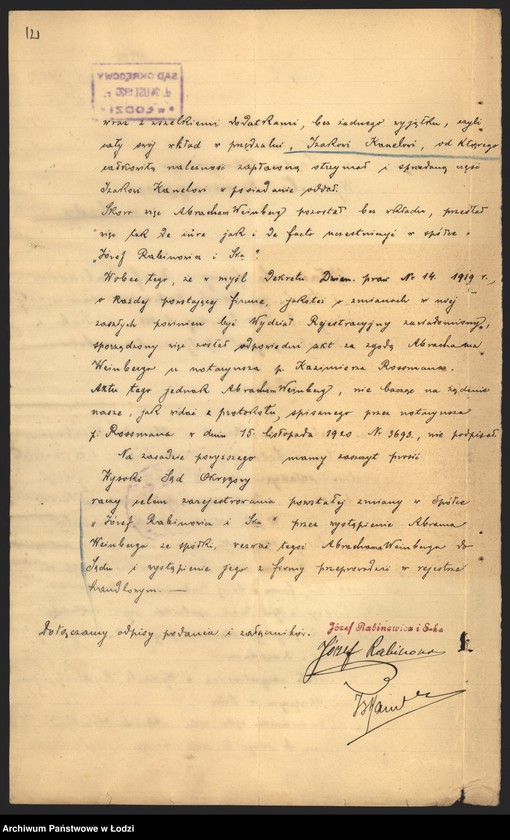 wraz z wszelkiemi dodatkami, bez żadnego wyjątku, czyli
cały swój wkład w przędzalni, Izakowi Kanelowi, od którego
całkowitą należność zapłaconą otrzymał i sprzedaną część
Izakowi Kanelowi w posiadanie oddał.
Skoro więc Abracham Weinberg pozostał bez wkładu, przestał
więc tak de iure jak i de facto uczestniczyć w spółce
„Józef Rabinowicz i Ska"
Wobec tego, że w myśl Dekretu Dzien. praw Nr 14. 1919 r.,
o każdej powstającej firmie, jakoteż o zmianach w niej
zaszłych powinien być Wydział Rejestracyjny zawiadomiony,
sporządzony więc został odpowiedni akt za zgodą Abrachama
Weinberga u notaryusza p. Kazimierza Rossmana.
Aktu tego jednak Abracham Weinberg, nie bacząc na żądanie
nasze, jak widać z protokułu, spisanego przez notaryusza
p. Rossmana w dniu 15. listopada 1920 N. 3693., nie podpisał.
Na zasadzie powyższego mamy zaszczyt prosić
Wysoki Sąd Okręgowy
raczy celem zarejestrowania powstałej zmiany w Spółce
„Józef Rabinowicz i Ska" przez wystąpienie Abrama
Weinberga ze spółki, wezwać tegoż Abrachama Weinberga do
Sądu i wystąpienie jego z firmy przeprowadzić w rejestrze
handlowym. —
Dołączamy odpisy podania i załączników.
Józef Rabinowicz i S-ka
Józef Rabinowicz
SĄD OKRĘGOWY
w ŁODZI
Archiwum Państwowe w Łodzi